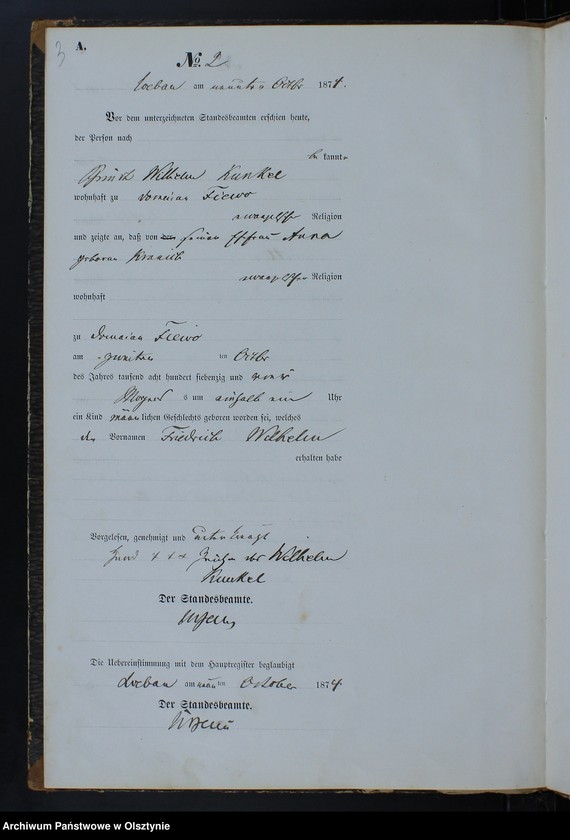 3
A.
No. 2
Loebau am neunten Octbr 1874.
Vor dem unterzeichneten Standesbeamten erschien heute,
der Person nach
be kannt
Wilhelm Kunkel
wohnhaft zu Domaine Fiewo
evangelischer Religion
und zeigte an, daß von seiner Ehefrau Anna
geborene
evangelischer Religion
wohnhaft
zu Domaine Fiewo
am zweiten ten Octbr
des Jahres tausend acht hundert siebenzig und vier
Morgens um einhalb ein Uhr
ein Kind männlichen Geschlechts geboren worden sei, welches
die Vornamen Friedrich Wilhelm
erhalten habe
Vorgelesen, genehmigt und
Hand + + + Zeichen des Wilhelm
Kunkel
Der Standesbeamte.
Die Uebereinstimmung mit dem Hauptregister beglaubigt
Loebau am neun ten October 1874
Der Standesbeamte.
Archiwum Państwowe w Olsztynie